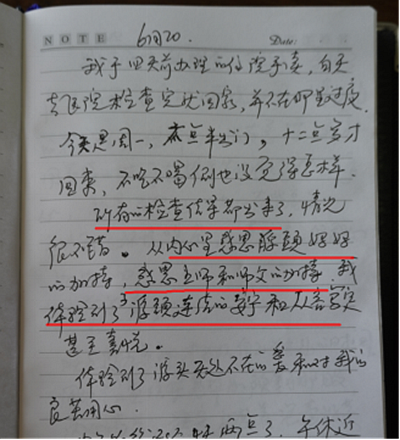 NOTE 6月20. Date:
我于四天前办理的住院手续，白天
去医院检查完就回家，并不在那里过夜.
今天是周一，点半出门，十二点多才
回来，不吃不喝倒也没觉得怎样.
所有的检查结果都出来了，情况
很不错。从内心里感恩源头妈妈
的加持，感恩主师和师父的加持.我
体验到了与源头连结的和从容
甚至喜悦。
体验到了源头无处不在的爱和对我的
良苦用心.
两点了，午休近